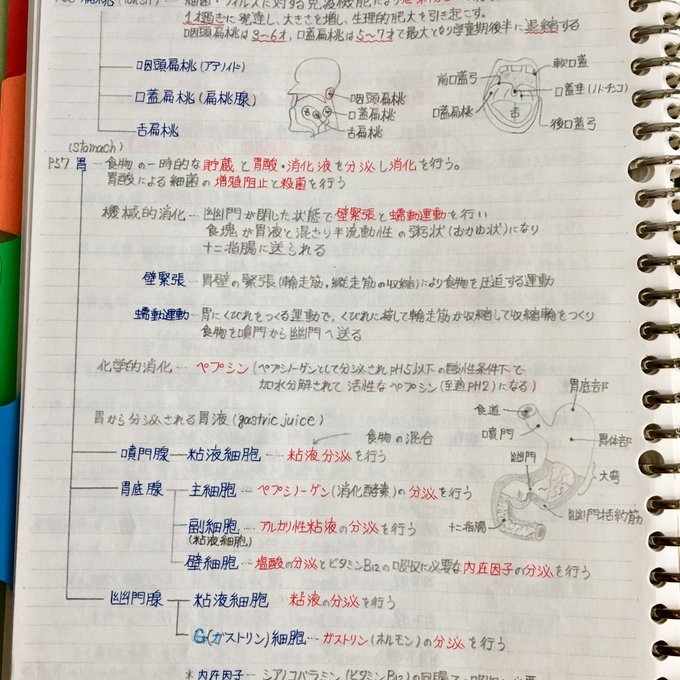 扁桃 (tonsil) … 細菌・ウイルスに対する免疫機能により
1才頃さに発達し、大きさを増し、生理的肥大を引き起こす。
咽頭扁桃は3~6才、口蓋扁桃は5~7才で最大となり学童期後半に退縮する
咽頭扁桃 (アデノイド)
口蓋扁桃 (扁桃腺)
舌扁桃
咽頭扁桃
口蓋扁桃
舌扁桃
前口蓋弓
口蓋扁桃
軟口蓋
口蓋垂(ノドチンコ)
後口蓋弓
舌
(stomach)
P57 胃 … 食物の一時的な貯蔵と胃酸・消化液を分泌し消化を行う。
胃酸による細菌の増殖阻止と殺菌を行う
機械的消化 … 幽門が閉じた状態で壁緊張と蠕動運動を行い
食塊が胃液と混ざり半流動性の粥状(おかゆ状)になり
十二指腸に送られる
壁緊張 … 胃壁の緊張(輪走筋,縦走筋の収縮)により食物を圧迫する運動
蠕動運動 … 胃にくびれをつくる運動で、くびれに接して輪走筋が収縮して収縮輪をつくり
食物を噴門から幽門へ送る
化学的消化 … ペプシン (ペプシノーゲンとして分泌されPH5以下の酸性条件下で
加水分解されて活性なペプシン(至適PH2)になる)
胃から分泌される胃液 (gastric juice)
食物の混合
噴門腺 — 粘液細胞 … 粘液分泌を行う
胃底腺 — 主細胞 … ペプシノーゲン(消化酵素)の分泌を行う
副細胞 … アルカリ性粘液の分泌を行う
(粘液細胞)
壁細胞 … 塩酸の分泌とビタミンB12の吸収に必要な内在因子の分泌を行う
幽門腺 — 粘液細胞 粘液の分泌を行う
G(ガストリン)細胞 … ガストリン(ホルモン)の分泌を行う
食道
噴門
幽門
十二指腸
胃底部
胃体部
大彎
幽門括約筋
*内在因子 … シアノコバラミン(ビタミンB12)の